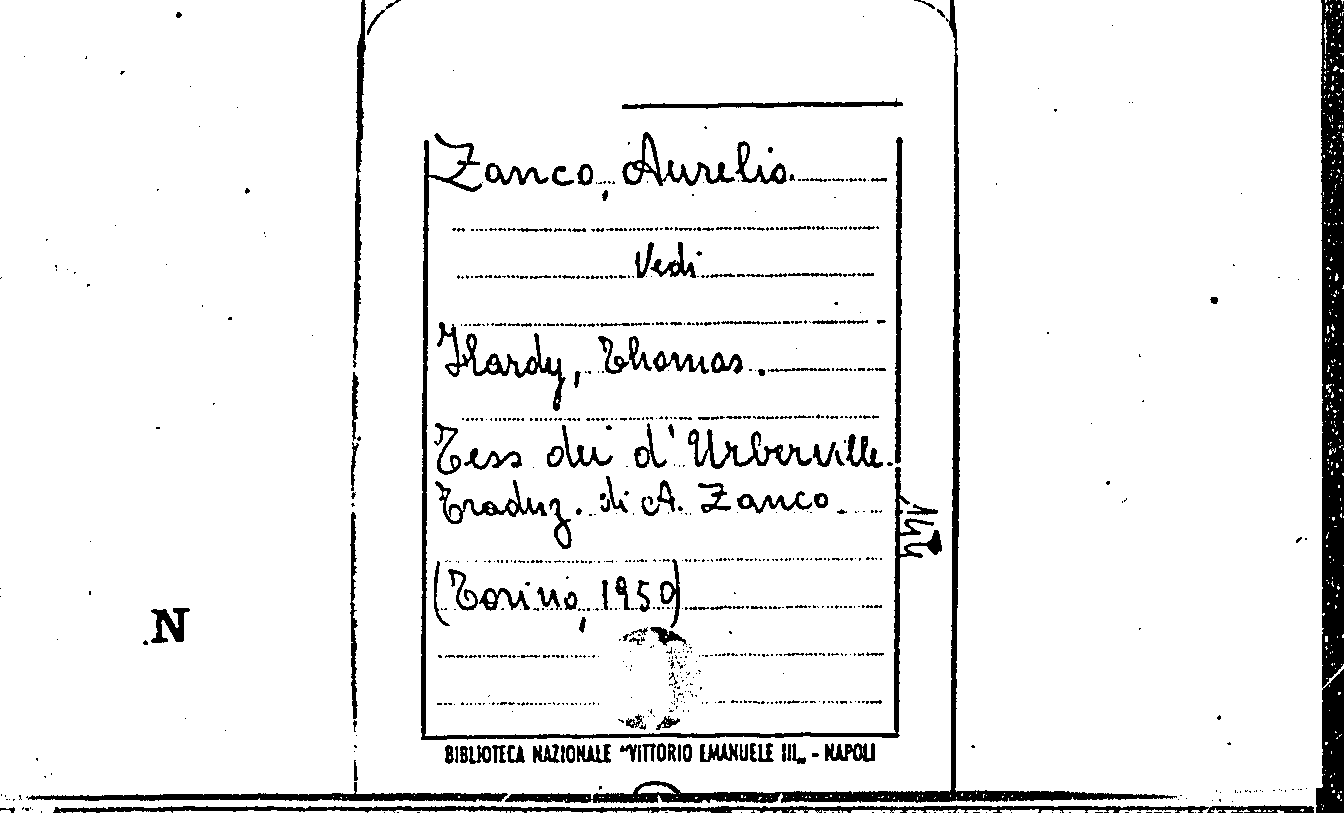 Zanco, Aurelio.
Vedi
Hardy, Thomas.
Tess dei d'Urberville.
Traduz. di A. Zanco.
(Torino, 1950)
N
BIBLIOTECA NAZIONALE "VITTORIO EMANUELE III„ - NAPOLI